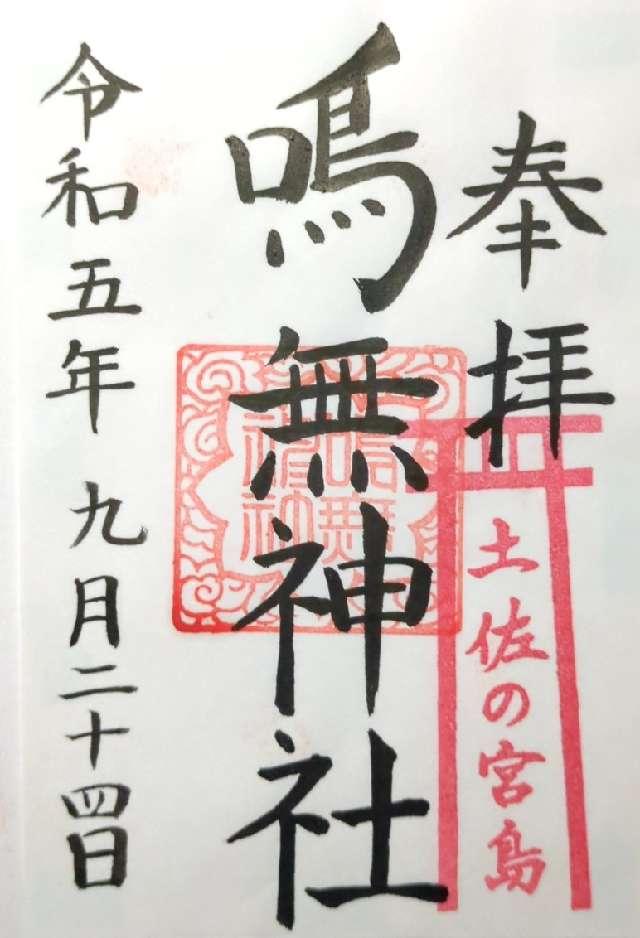 奉拝
土佐の宮島
鳴無神社
令和五年 九月二十四日